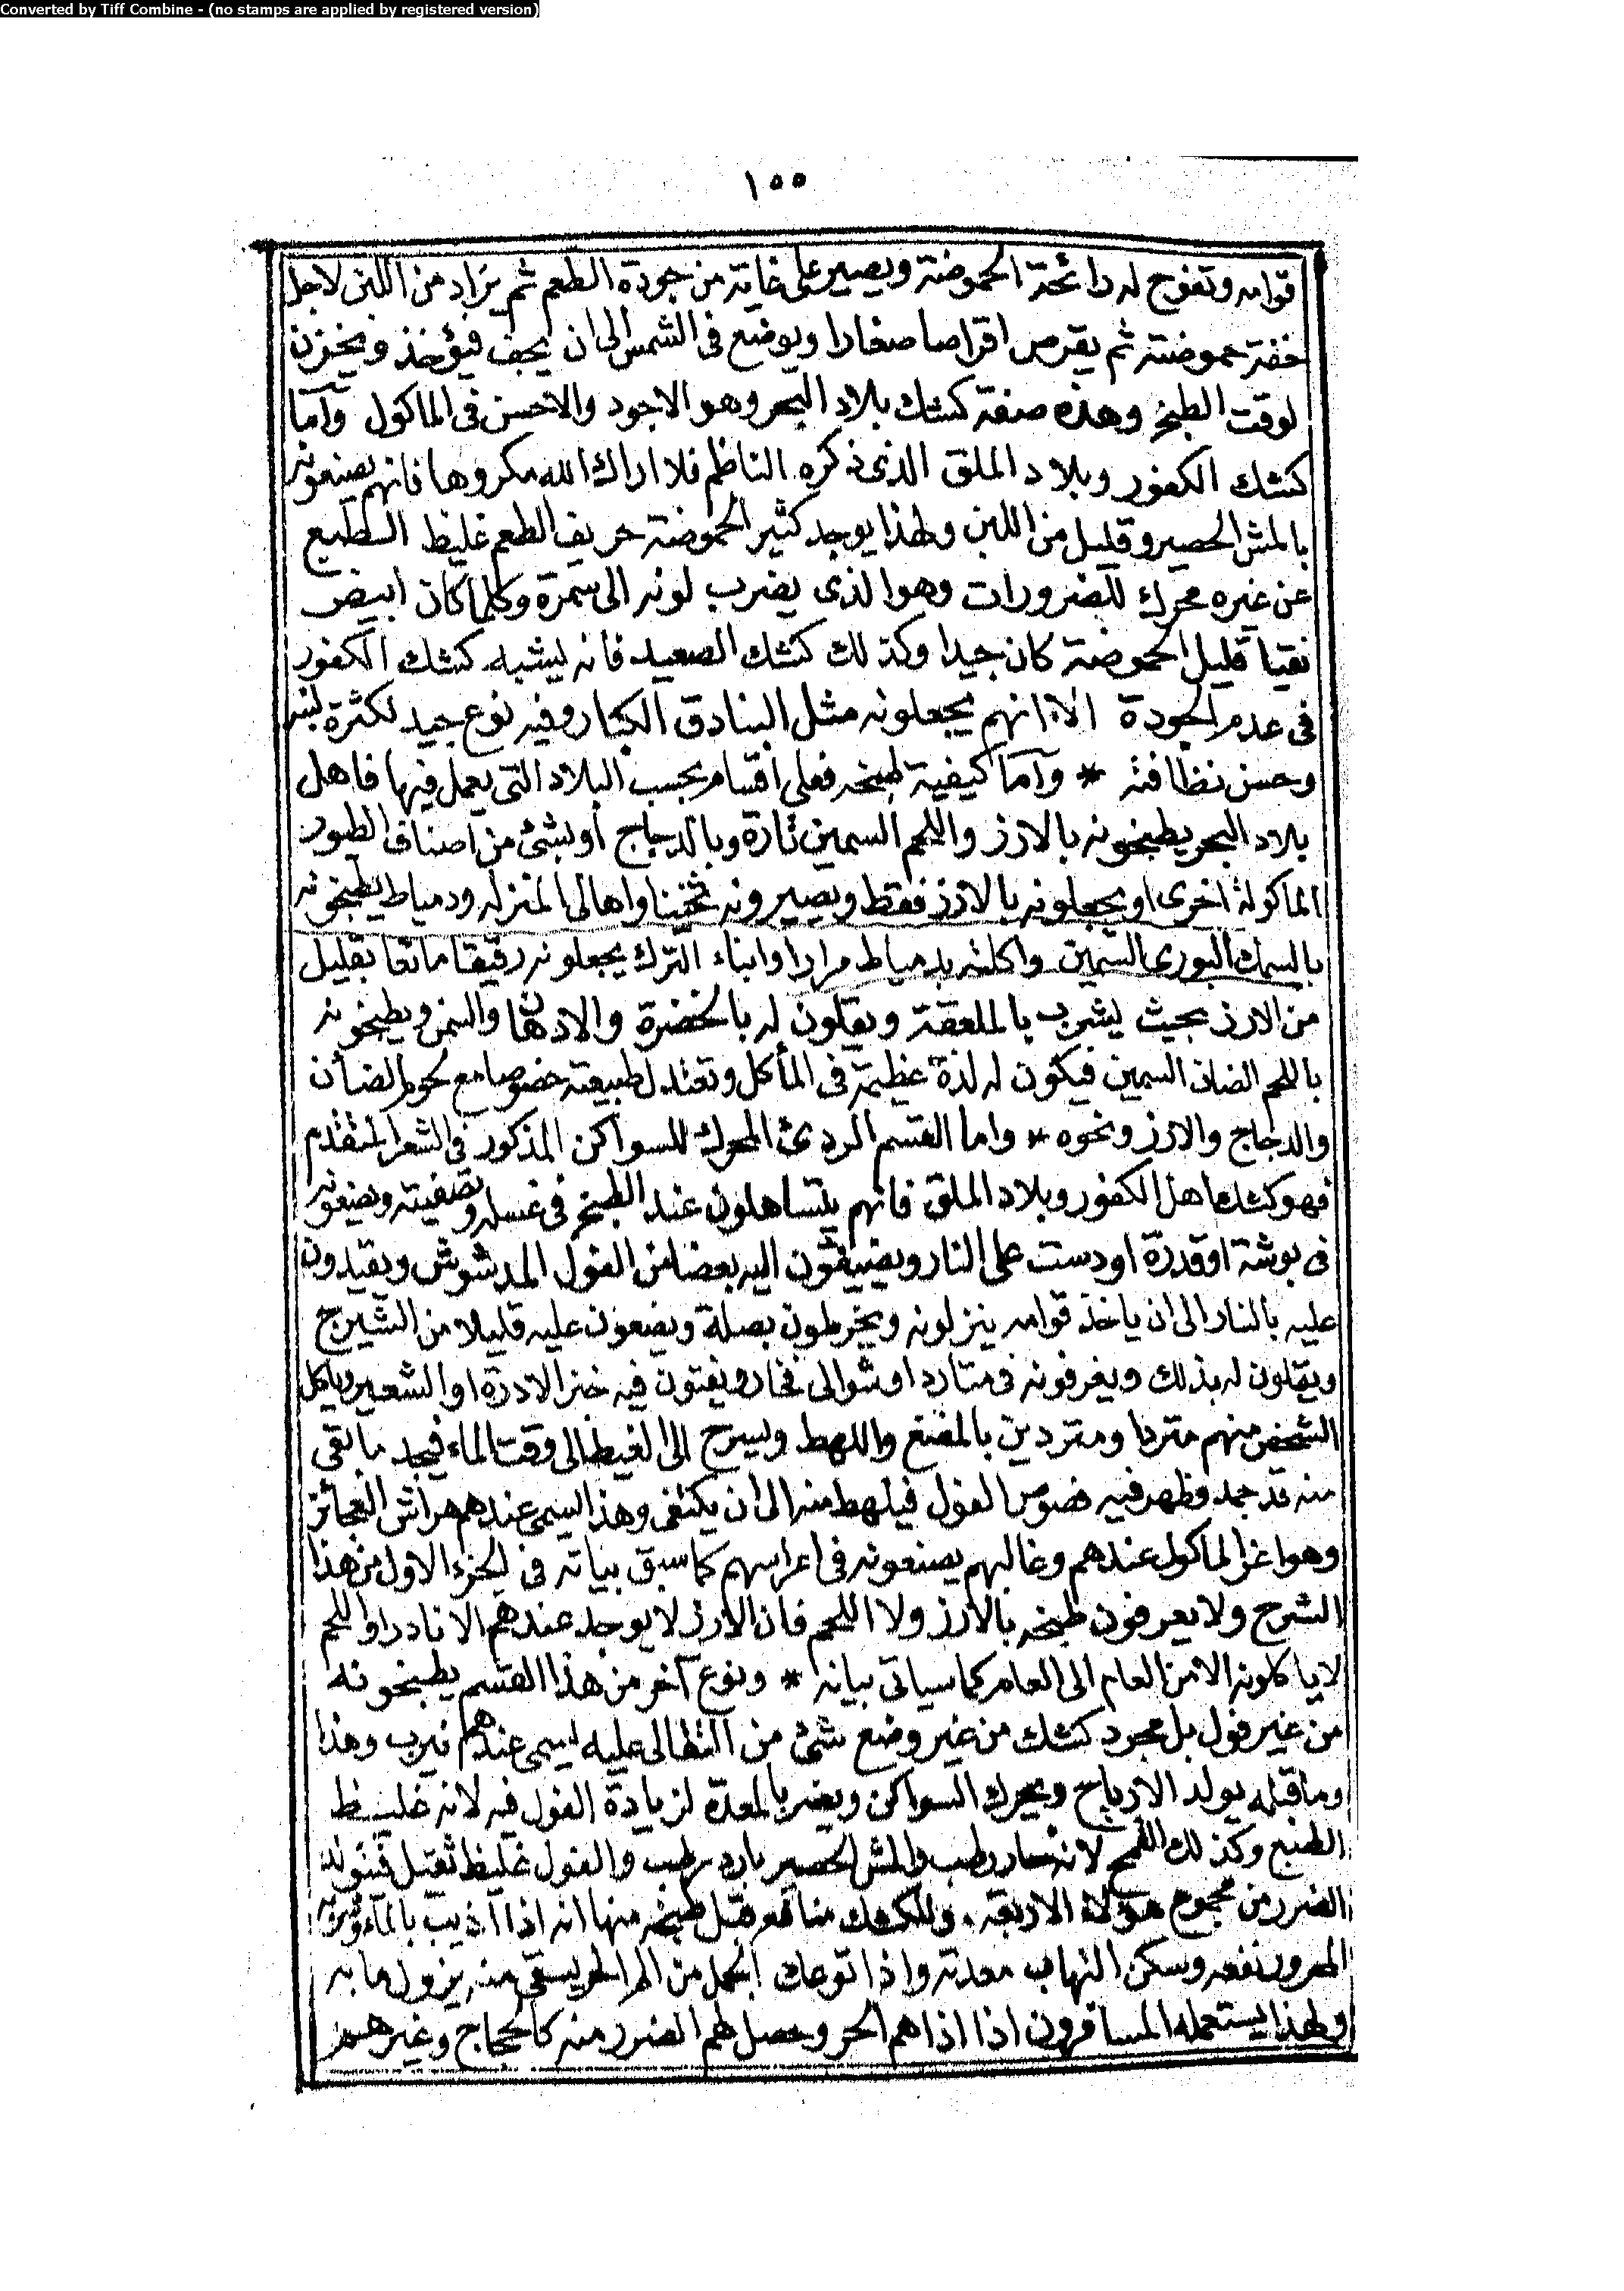 Converted by Tiff Combine - (no stamps are applied by registered version)
١٥٥
قوامه وتفوح له رائحة الحموضة ويصير على غاية من جودة الطعم ثم يزاد من اللبن لاجل
خفة حموضته ثم يقرص اقراصا صغارا ويوضع فى الشمس الى ان يجف فيؤخذ ويخزن
لوقت الطبخ وهذه صفة كشك بلاد البحر وهو الاجود والاحسن فى الماكول وآما
كشك الكفور وبلاد الملق الذى ذكره الناظم فلا اراك الله مكروها فانهم يصنعونه
بالمش الحصير وقليل من اللبن ولهذا يوجد كثير الحموضة حريف الطعم غليظ الطبع
عن غيره محرك للضرورات وهو الذى يضرب لونه الى سمرة وكلما كان ابيض
نقيا قليل الحموضة كان جيدا وكذلك كشك الصعيد فانه يشبه كشك الكفور
فى عدم الجودة الا انهم يجعلونه مثل البنادق الكبار وفيه نوع جيد لكثرة لبنه
وحسن نظافته * وآما كيفية طبخه فعلى اقسام بحسب البلاد التى يعمل فيها فاهل
بلاد البحر يطبخونه بالارز واللحم السمين تارة وبالدجاج أو بشئ من اصناف الطيور
الماكولة اخرى او يجعلونه بالارز فقط ويصيرونه ثخينا واهالى المنزله ودمياط يطبخونه
بالسمك البورى السمين واكلته بدمياط مرارا وابناء الترك يجعلونه رقيقا مائعا بقليل
من الارز بحيث يشرب بالملعقة ويقلون له بالخضرة والادهان والسمن ويطبخونه
باللحم الضان السمين فيكون له لذة عظيمة فى المأكل وتعتدل طبيعته خصوصا مع لحوم الضأن
والدجاج والارز ونحوه * واما القسم الردئ المحرك للسواكن المذكور فى الشعر المتقدم
فهو كشك اهل الكفور وبلاد الملق فانهم يتساهلون عند الطبخ فى غسله وتصفيته ويضعونه
فى بوشة او قدرة او دست على النار ويضيفون اليه بعضا من الفول المدشوش ويقيدون
عليه بالنار الى ان ياخذ قوامه ينزلونه ويخرطون بصلة ويضعون عليه قليلا من الشيرج
ويقلون له بذلك ويغرفونه فى متارد او شوالى فخار ويفتون فيه خبز الادرة او الشعير وياكل
الشخص منهم متردا ومتردين بالمضغ واللهط ويسرح الى الغيط الى وقت الماء فيجد ما بقى
منه قد جمد وظهر فيه فصوص الفول فيلهط منه الى ان يكتفى وهذا يسمى عندهم هراش العجائز
وهو اعز الماكول عندهم وغالبهم يصنعونه فى اعراسهم كما سبق بيانه فى الجزء الاول من هذا
الشرح ولا يعرفون طبخه بالارز ولا اللحم فان الارز لا يوجد عندهم الا نادرا واللحم
لا ياكلونه الا من العام الى العام كما سياتى بيانه * ونوع آخر من هذا القسم يطبخونه
من غير فول بل مجرد كشك من غير وضع شئ من عليه يسمى عندهم نيرب وهذا
وما قبله يولد الارياح ويحرك السواكن ويضر بالمعدة لزيادة الفول فيه لانه غليظ
الطبع وكذلك القمح لانه حار رطب والمش الحصير بارد رطب والفول غليظ ثقيل فيتولد
الضرر من مجموع هؤلاء الاربعة. وللكشك منافع قبل طبخه منها انه اذا آذيب بالماء وشربه
المحرور نفعه وسكن التهاب معدته واذا توعك الجمل من الم الحر يسقى منه يزول ما به
ولهذا يستعمله المسافرون اذا اذاهم الحر وحصل لهم الضرر منه كالحجاج وغيرهم